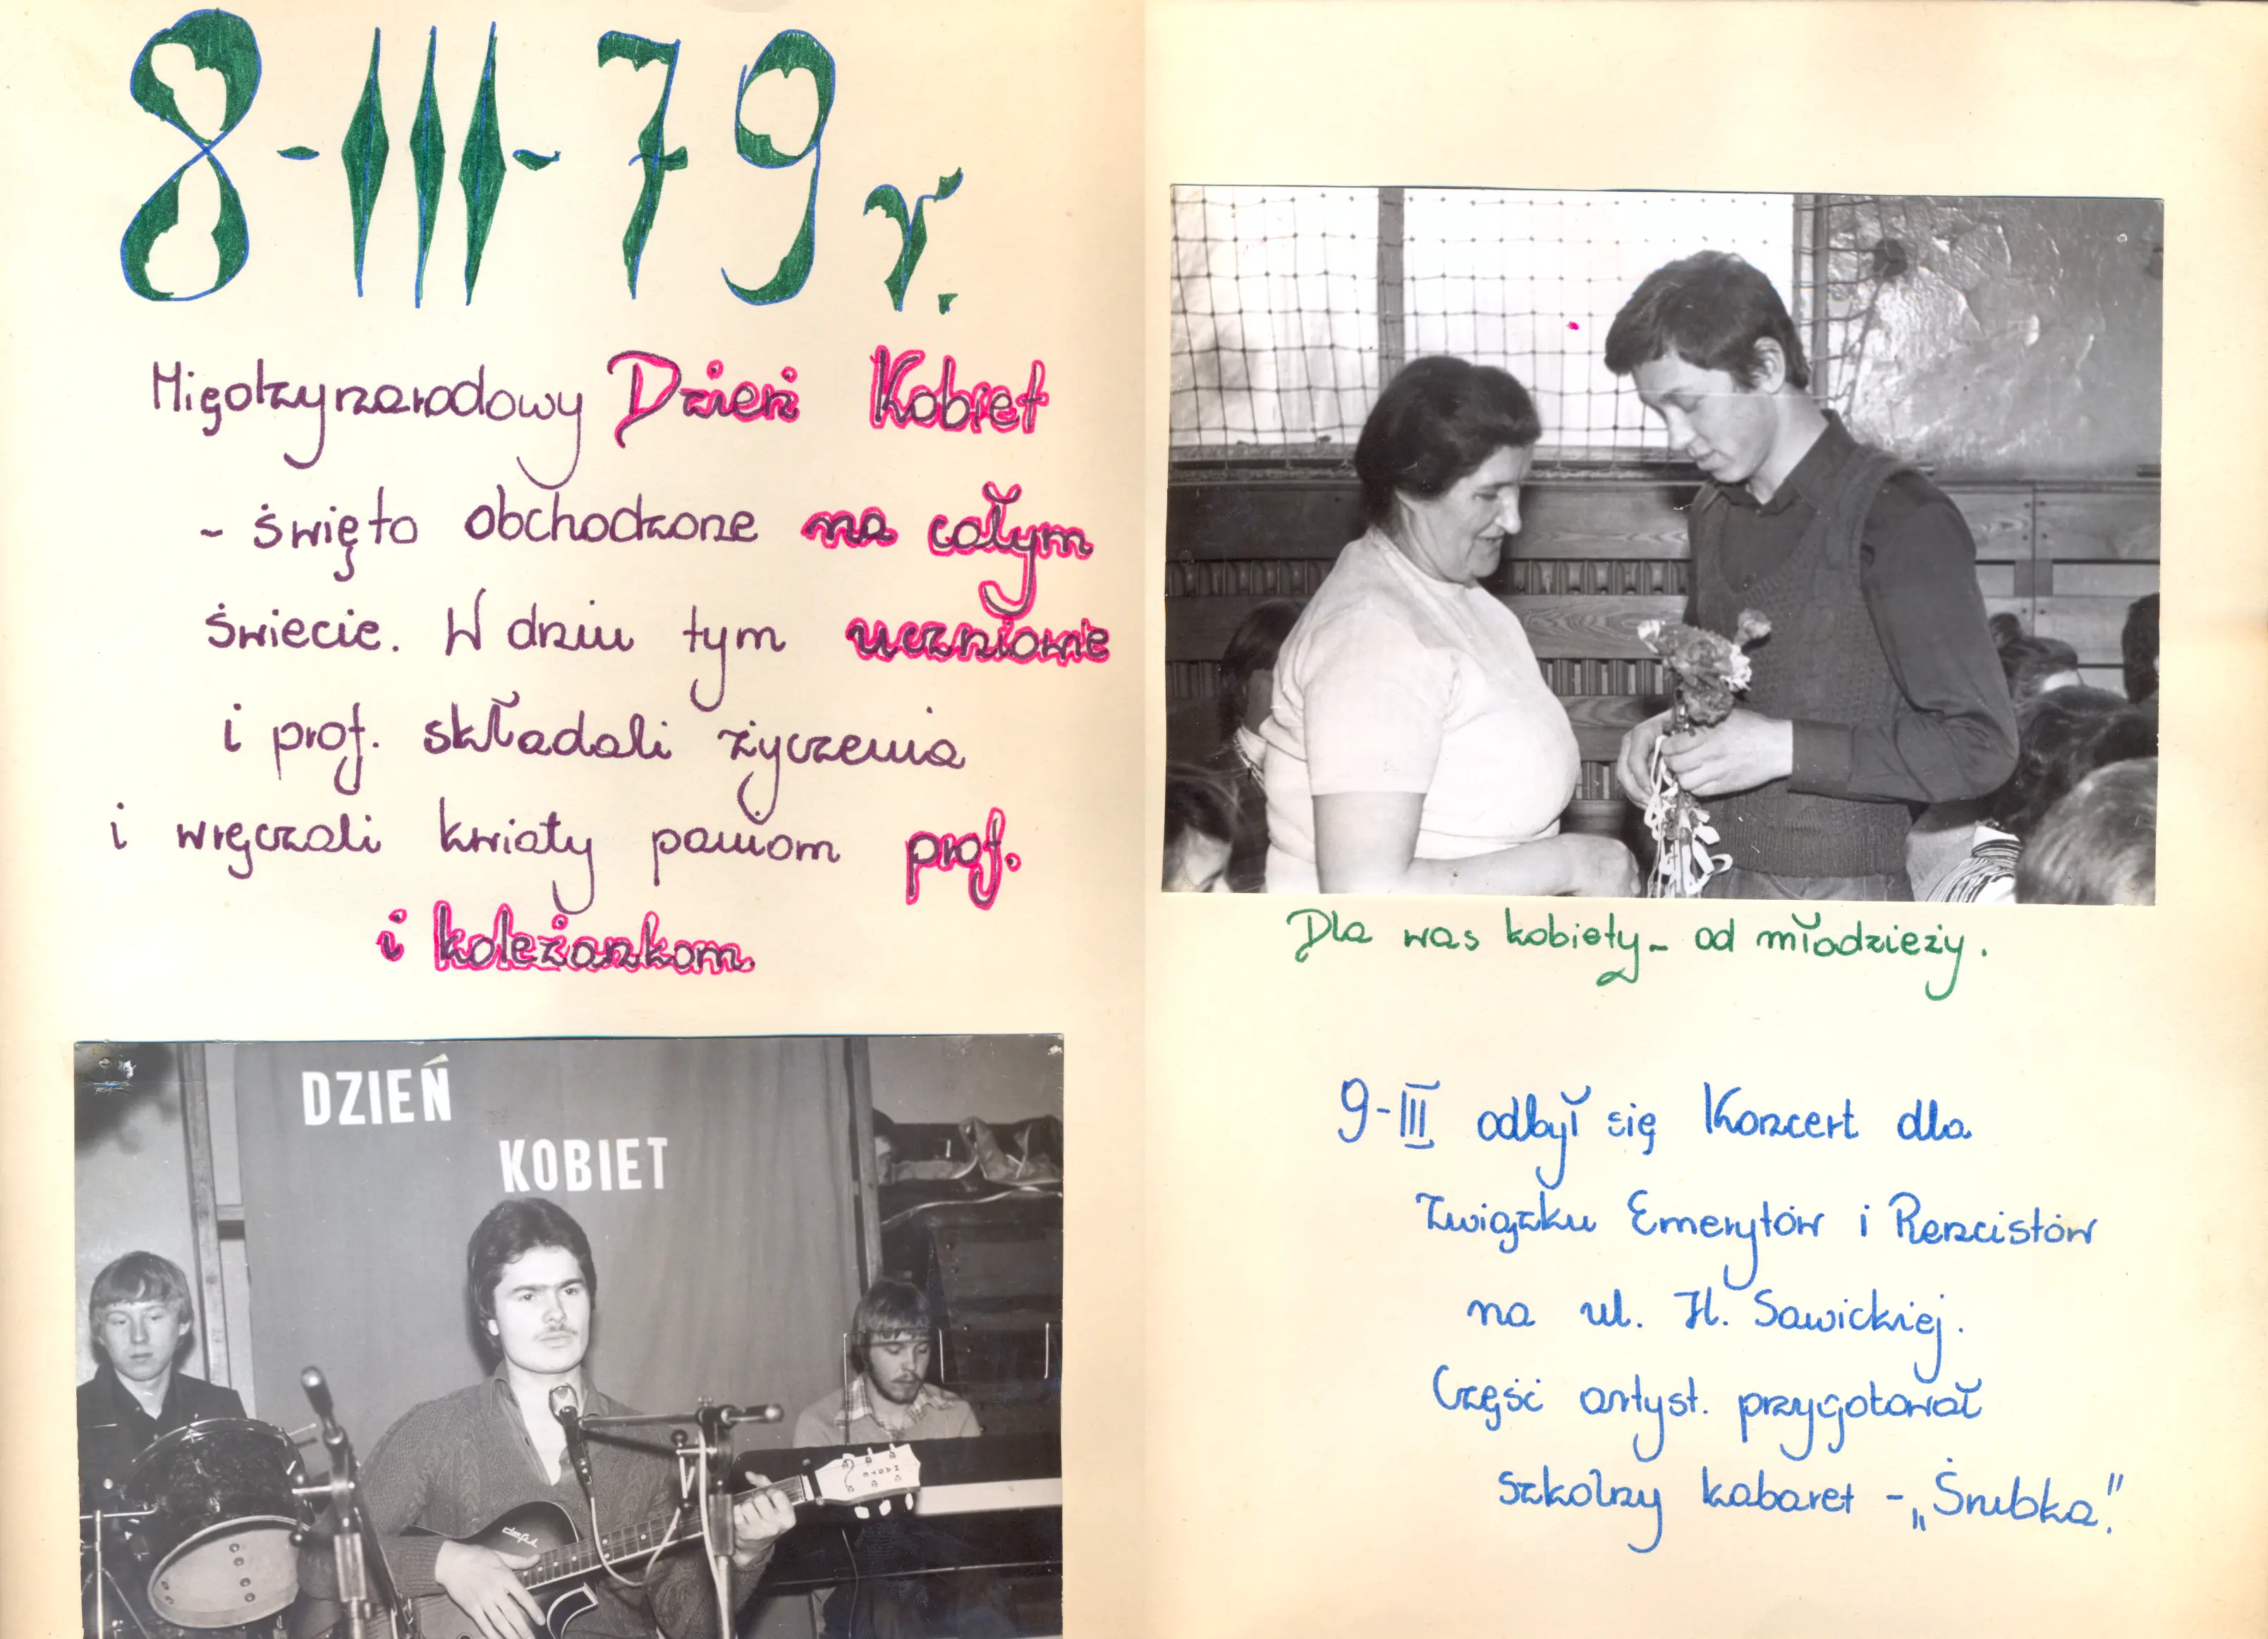 8-III-79 r.
Międzynarodowy Dzień Kobiet
- święto obchodzone na całym
świecie. W dniu tym uczniowie
i prof. składali życzenia
i wręczali kwiaty paniom prof.
i koleżankom.
DZIEŃ
KOBIET
Dla was kobiety - od młodzieży.
9-III odbył się Koncert dla
Związku Emerytów i Rencistów
na ul. H. Sawickiej.
Część artyst. przygotował
szkolny kabaret - „Śrubka."